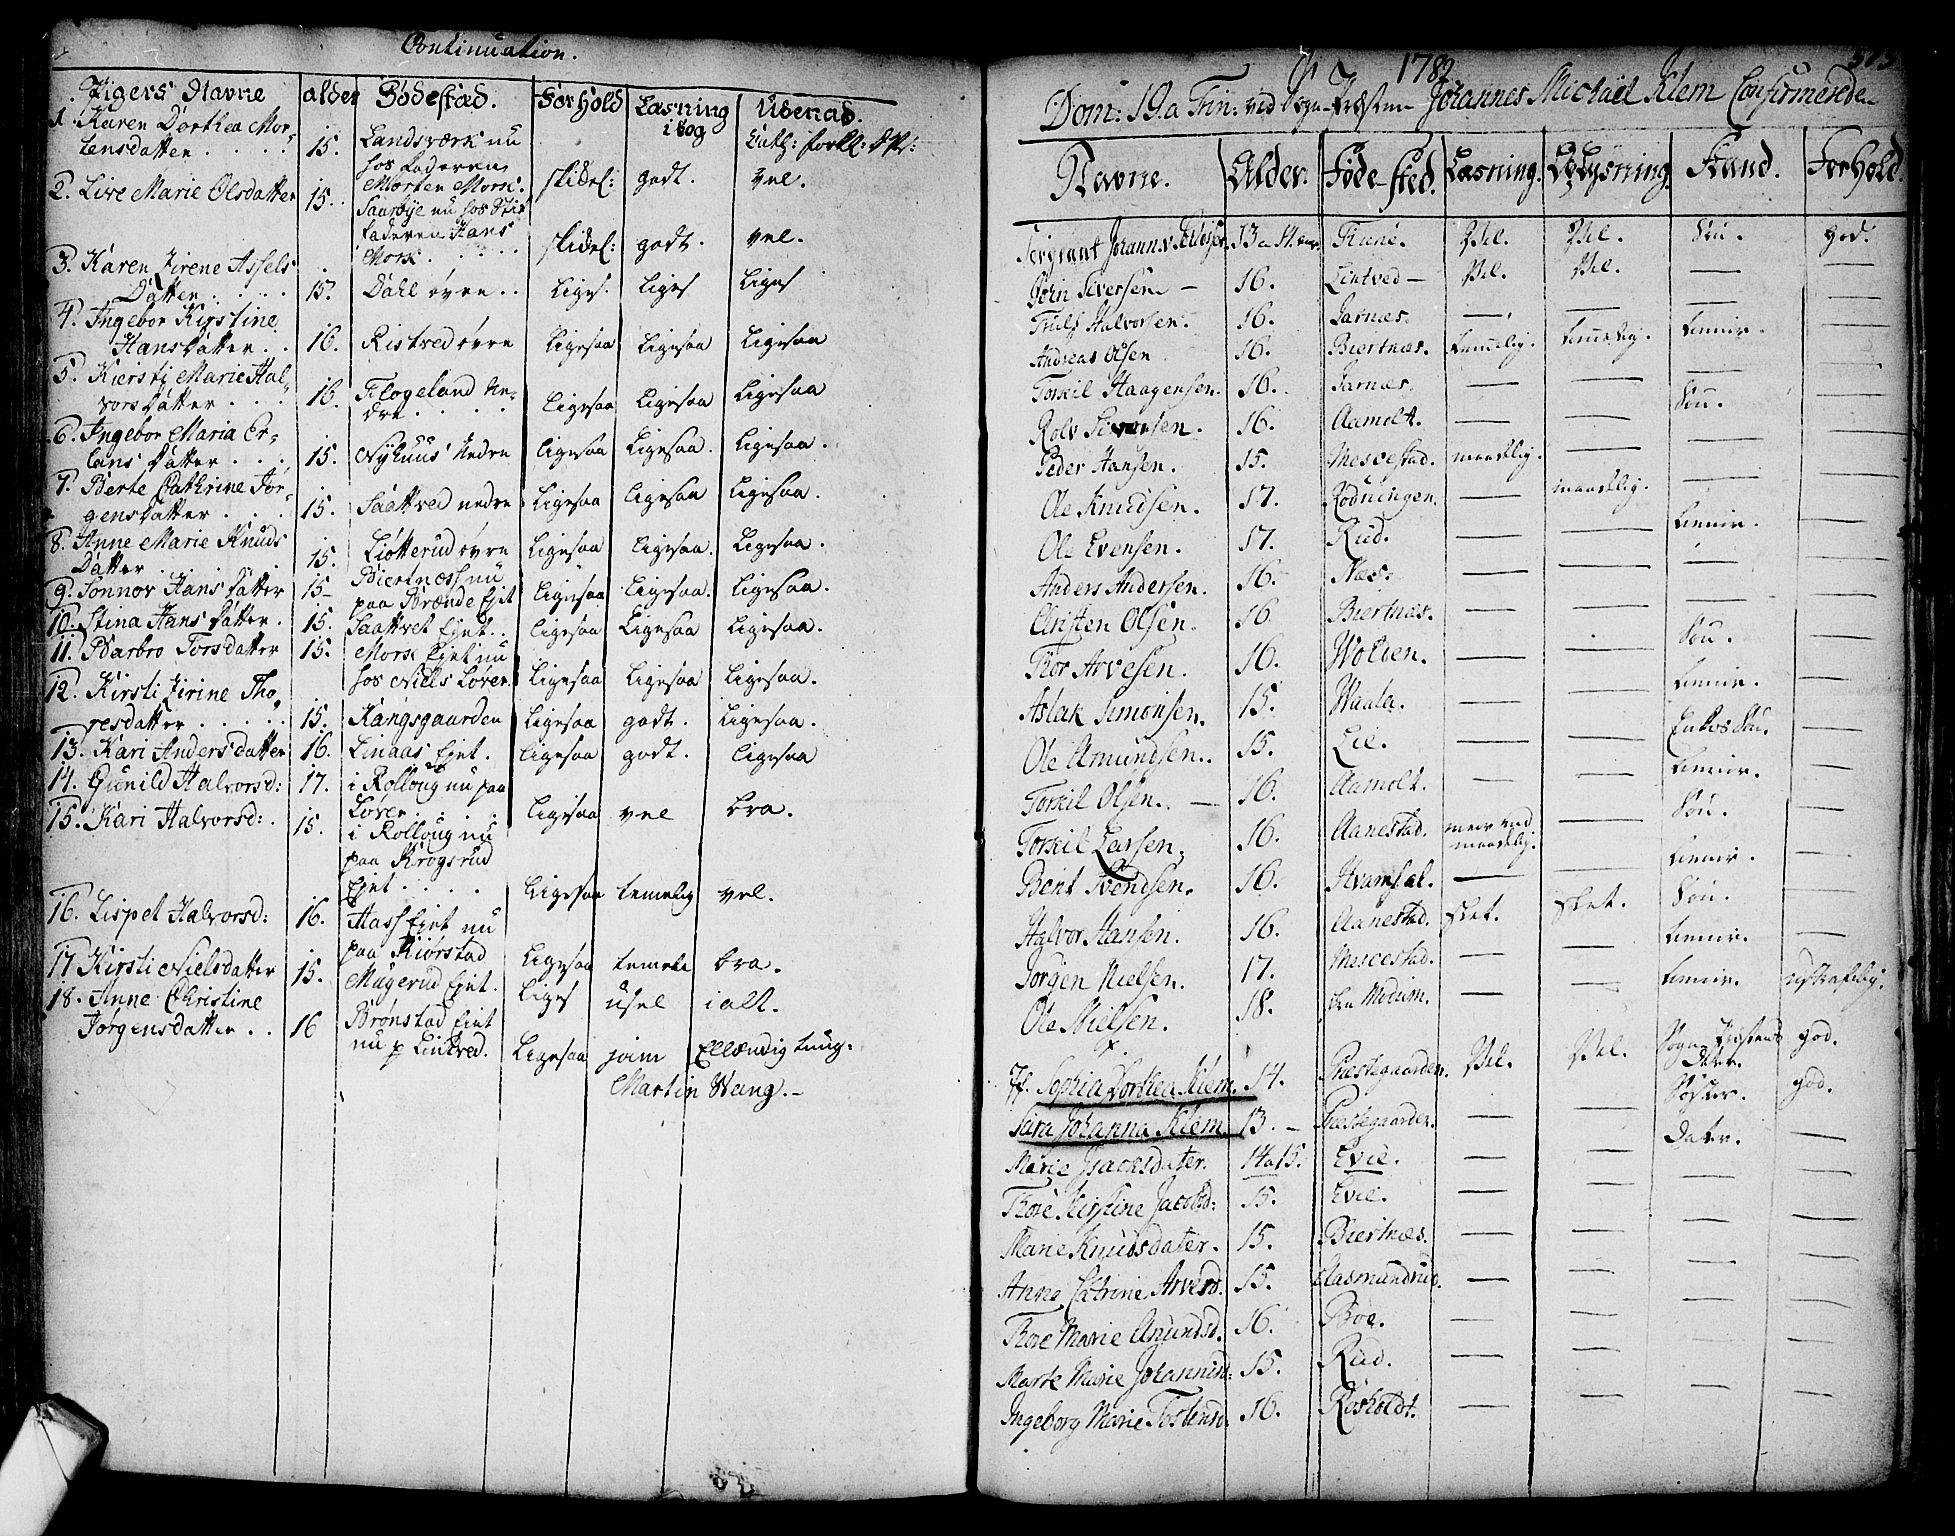 Continuation.
Pigers Navne alder Bödestæd. Forhold Læsning i bog Udenad.
1. Karen Dorthea Mor-
tensdatter . . . . 15. Landsværk nu
hos faderen
Morten Mork. skikel: godt. vel.
2. Live Marie Olsdatter 15. Saastbye nu hos Stif
faderen Hans
Mork. . . . . skikel: godt. vel.
3. Karen Jirene Assels
Datter . . . . 15. Dahl övre . . Liges. Liges Liges
4. Ingebor Kirstine
Hansdatter . . 16. Ristved övre Ligesaa Ligesaa Ligesaa
5. Kiersti Marie Hal-
vorsdatter . . . 16. Flogeland Ne-
dre . . . . Ligesaa Ligesaa Ligesaa
6. Ingebor Maria Er-
lansdatter . . . 15. Nyhuus Nedre Ligesaa Ligesaa. Ligesaa.
7. Berte Cathrine Jör-
gensdatter . . . 15. Saattved nedre Ligesaa Ligesaa Ligesaa.
8. Anne Marie Knuds
Datter . 15. Liötterud övre Ligesaa Ligesaa. Ligesaa.
9. Sönnov Hansdatter 15- Biertness nu
paa Brænde Ejet Ligesaa Ligesaa. Ligesaa.
10. Stina Hansdatter . 15. Saattvet Ejet . . Ligesaa Ligesaa Ligesaa.
11. Barbro Torsdatter 15. Mork Ejet nu
hos Niels Löver. Ligesaa Ligesaa Ligesaa.
12. Kirsti Jirine Tho-
resdatter . . . . . 15. Kangsgaarden Ligesaa godt. Ligesaa.
13. Kari Andersdatter 16. Linaas Ejet. Ligesaa godt. Ligesaa
14. Gunild Halvorsd: 17. i Rolloug nu paa
Löver . . . . Ligesaa vel bra.
15. Kari Halvorsd: . 15. i Rolloug nu
paa Krogsrud
Ejet . . . . Ligesaa temelig vel.
16. Lispet Halvorsd: 16. Aass Ejet nu
paa Kiörstad Ligesaa temele bra.
17 Kirsti Nielsdatter 15. Mugerud Ejet. Liges usel i alt.
18. Anne Christine
Jörgensdatter . . 16 Brönstad Ejet
nu p Lintved. Ligesaa
Martin Wang.-
1782 515
Dom: 19. a Trin: ved Sogne-Præsten Johannes Michael Klem Confirmerede
Navne. Alder. Föde-sted. Læsning. Oplysning. Stand. Forhold.
Sergeant Vel. Vel. Sön. god.
Jörn Siversen - 16. Lintved - Vel. Vel. — —
Truls Halvorsen. 16. Jarnæs. — — — —
Andreas Olsen 16. Biertnæs. temelig. temelig. —
Torkil Haagensen. 16. Jarnæs. — — — —
Rolv Siversen. 16. Aamolt. — — Sön. —
Peder Hansen. 15. Mescestad. maadelig. — — —
Ole Knudsen. 17. Rodningen. — maadelig. — —
Ole Evensen. 17. Rud. — — —
Anders Andersen. 16. Næs. — — — —
Christen Olsen. 16. Biertnæs. — — — —
Thor Arvesen. 16. Wolien. — — Sön. —
Aslak Simonsen. 15. Waala. — — —
Ole Amundsen. 15. Lie. — — Enkes Sön. —
Torkil Olsen. — 16. Aamolt. — — —
Torkil Larsen. 16. Aanestad. maadelig. — Sön. —
Bent Svendsen. 16. Hvamsal. — — —
Halvor Hansen. 16. Aanestad. slet. slet. Sön. —
Jorgen Nielsen. 17. Mescestad. — — —
Ole Nielsen. 18. fra Modum. — — ustraffelig.
Sophia Dorthea Klem. 14. Præstegaarden. Vel. Vel. Sogne Præstens
Dater. god.
Sara Johanna Klem. 13. - Præstegaarden. — — Söster. god.
Marie Isacksdater. 14 a 15. Evie. — — Dater. —
Thore Kirstine Jacobsd: 15. Evie. — — — —
Marie Knudsdater. 15. Biertnæs. — — — —
Anne Catrine Arvesd. 15. Aasmundrud. — — — —
Thore Marie Amundsd. 16. Boe. — — — —
Marte Marie Johannisd: 15. Rud. — — — —
Ingeborg Marie Tostensd. 16. Rosholdt. — — — —